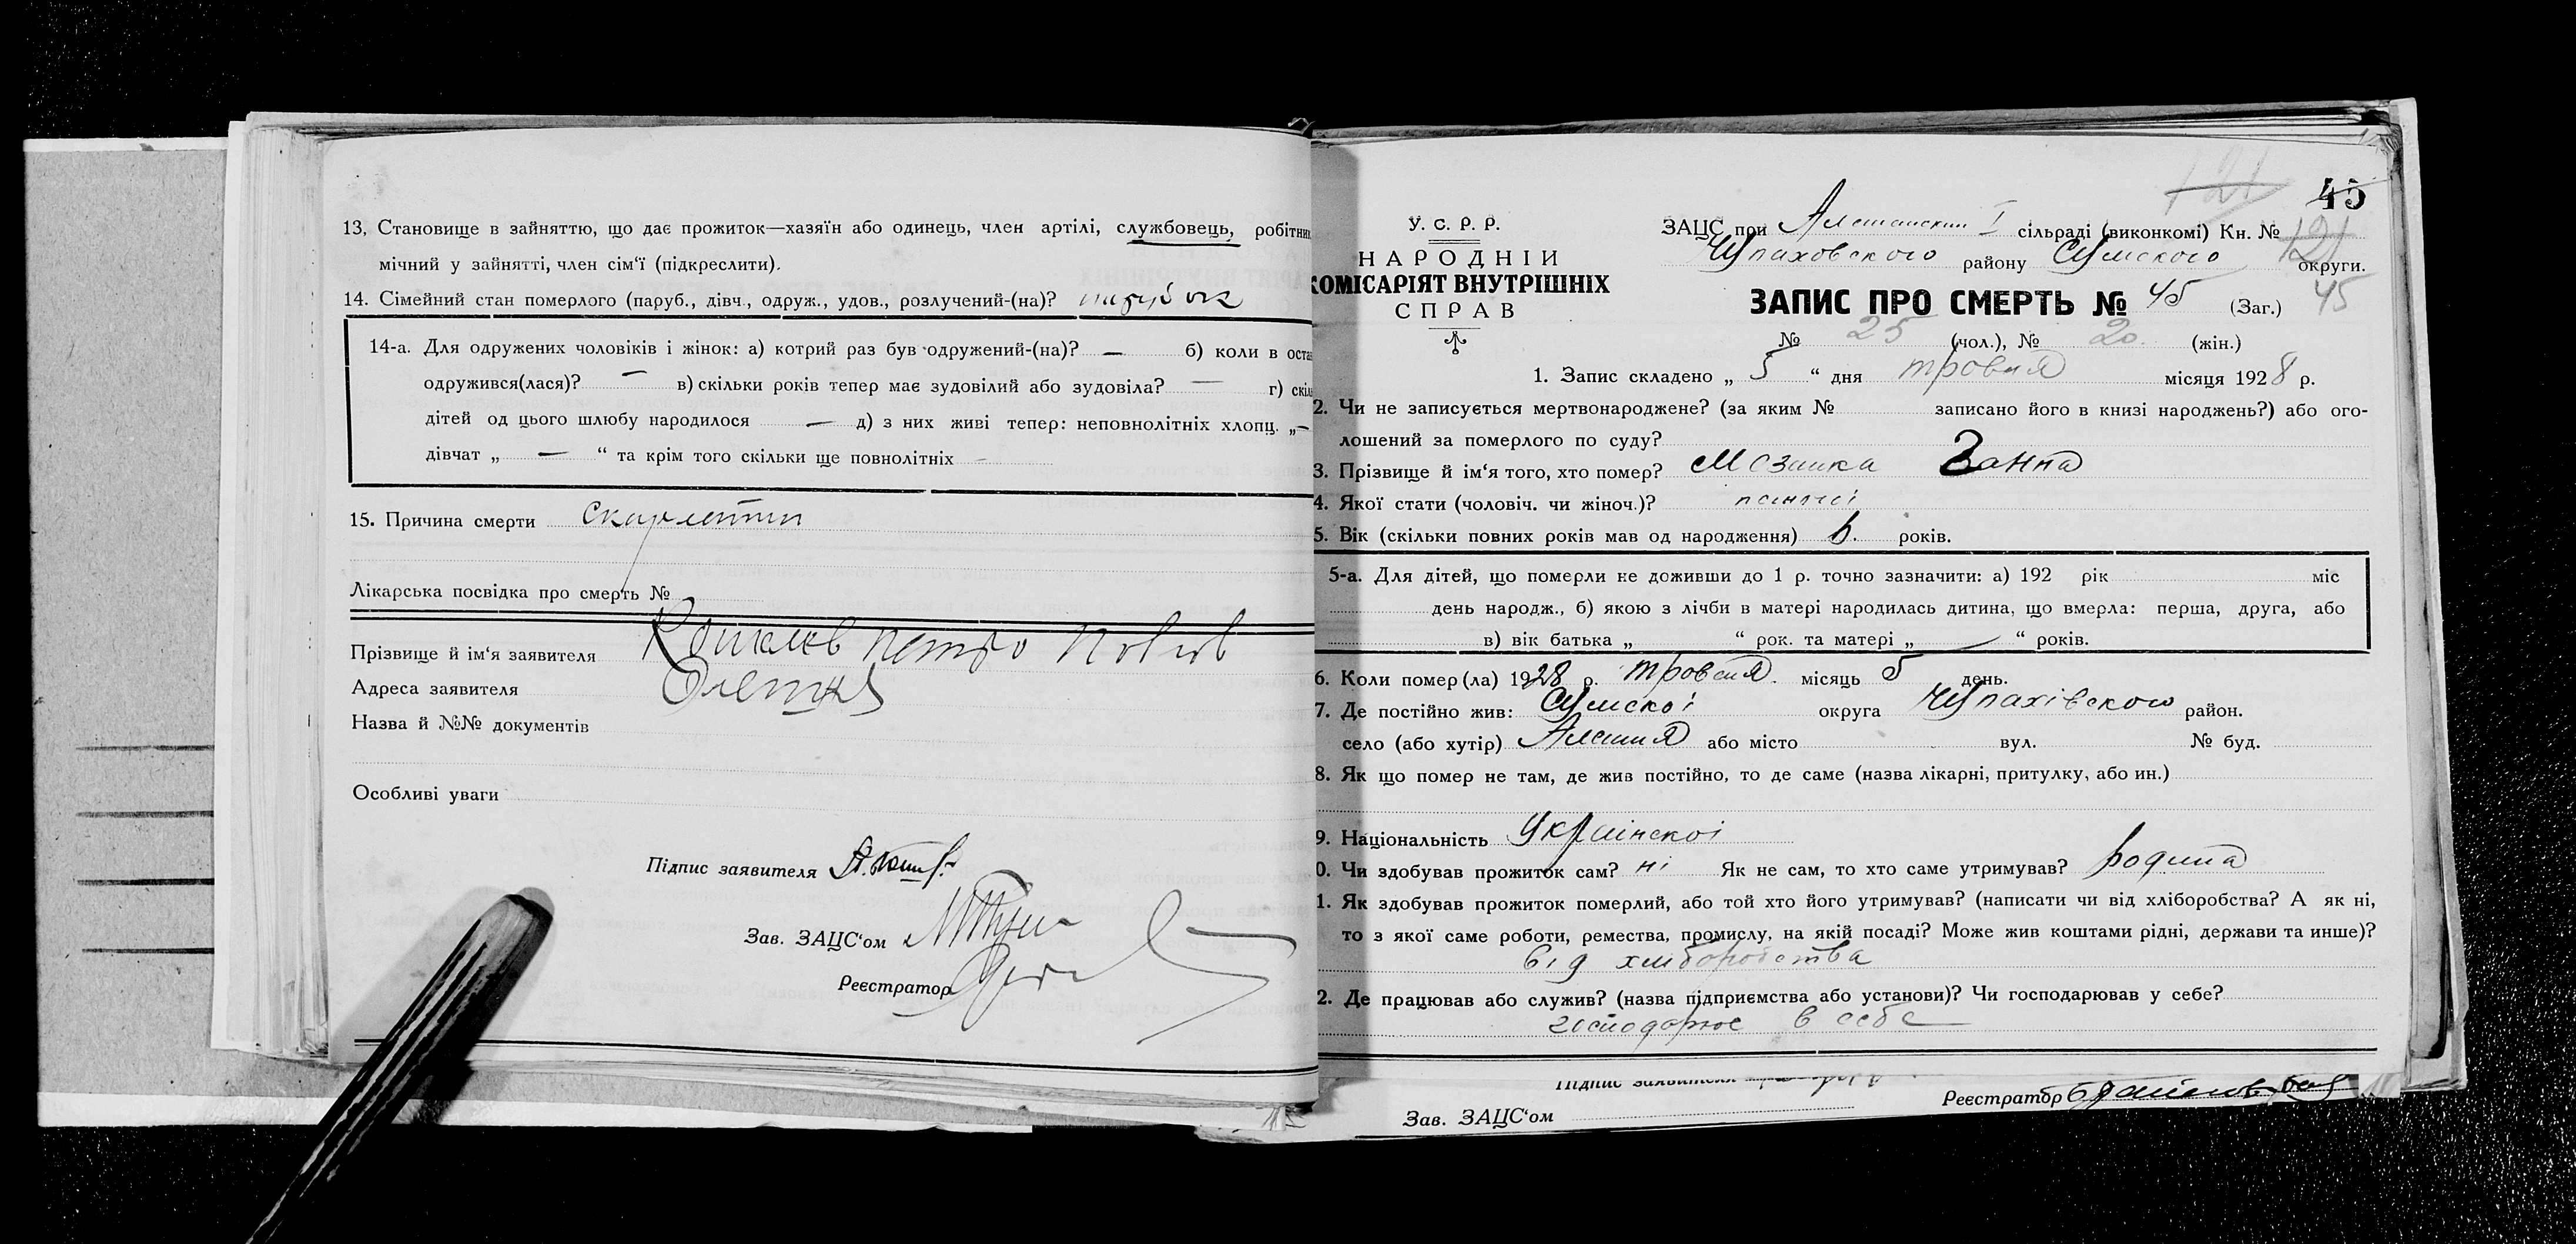 13. Становище в зайняттю, що дає прожиток—хазяїн або одинець, член артілі, службовець, робітник
мічний у зайнятті, член сім‘ї (підкреслити).
14. Сімейний стан померлого (паруб., дівч., одруж., удов., розлучений-(на)? парубок
14-а. Для одружених чоловіків і жінок: а) котрий раз був одружений-(на)? — б) коли в оста
одружився(лася)? — в) скільки років тепер має зудовілий або зудовіла? — г) скіль
дітей од цього шлюбу народилося — д) з них живі тепер: неповнолітніх хлопц. „—
дівчат „ — “ та крім того скільки ще повнолітніх —
15. Причина смерти скарлатин
Лікарська посвідка про смерть №
Прізвище й ім‘я заявителя Петро
Адреса заявителя
Назва й №№ документів
Особливі уваги
Підпис заявителя
Зав. ЗАЦС‘ом
Реєстратор
45
121
У. С. Р. Р.
НАРОДНІЙ
КОМІСАРІЯТ ВНУТРІШНІХ
СПРАВ
ЗАЦС при I сільраді (виконкомі) Кн. № 121
Чупаховского району Сумского округи.
ЗАПИС ПРО СМЕРТЬ № 45 (Заг.) 45
№ 25 (чол.), № 20 (жін.)
1. Запис складено „ 5 “ дня травня місяця 1928 р.
2. Чи не записується мертвонароджене? (за яким № записано його в книзі народжень?) або ого-
лошений за померлого по суду?
3. Прізвище й ім‘я того, хто помер?
4. Якої стати (чоловіч. чи жіноч.)?
5. Вік (скільки повних років мав од народження) років.
5-а. Для дітей, що померли не доживши до 1 р. точно зазначити: а) 192 рік міс
день народж., б) якою з лічби в матері народилась дитина, що вмерла: перша, друга, або
в) вік батька „ “ рок. та матері „ “ років.
6. Коли помер(ла) 1928 р. травня місяць 5 день.
7. Де постійно жив: Сумскоі округа Чупахівского район.
село (або хутір) Алешня або місто вул. № буд.
8. Як що помер не там, де жив постійно, то де саме (назва лікарні, притулку, або ин.)
9. Національність Украінскоі
0. Чи здобував прожиток сам? ні Як не сам, то хто саме утримував? родина
1. Як здобував прожиток померлий, або той хто його утримував? (написати чи від хліборобства? А як ні,
то з якої саме роботи, ремества, промислу, на якій посаді? Може жив коштами рідні, держави та инше)?
від хліборобства
2. Де працював або служив? (назва підприємства або установи)? Чи господарював у себе?
господарює в себе
Підпис заявителя
Зав. ЗАЦС‘ом
Реєстратор